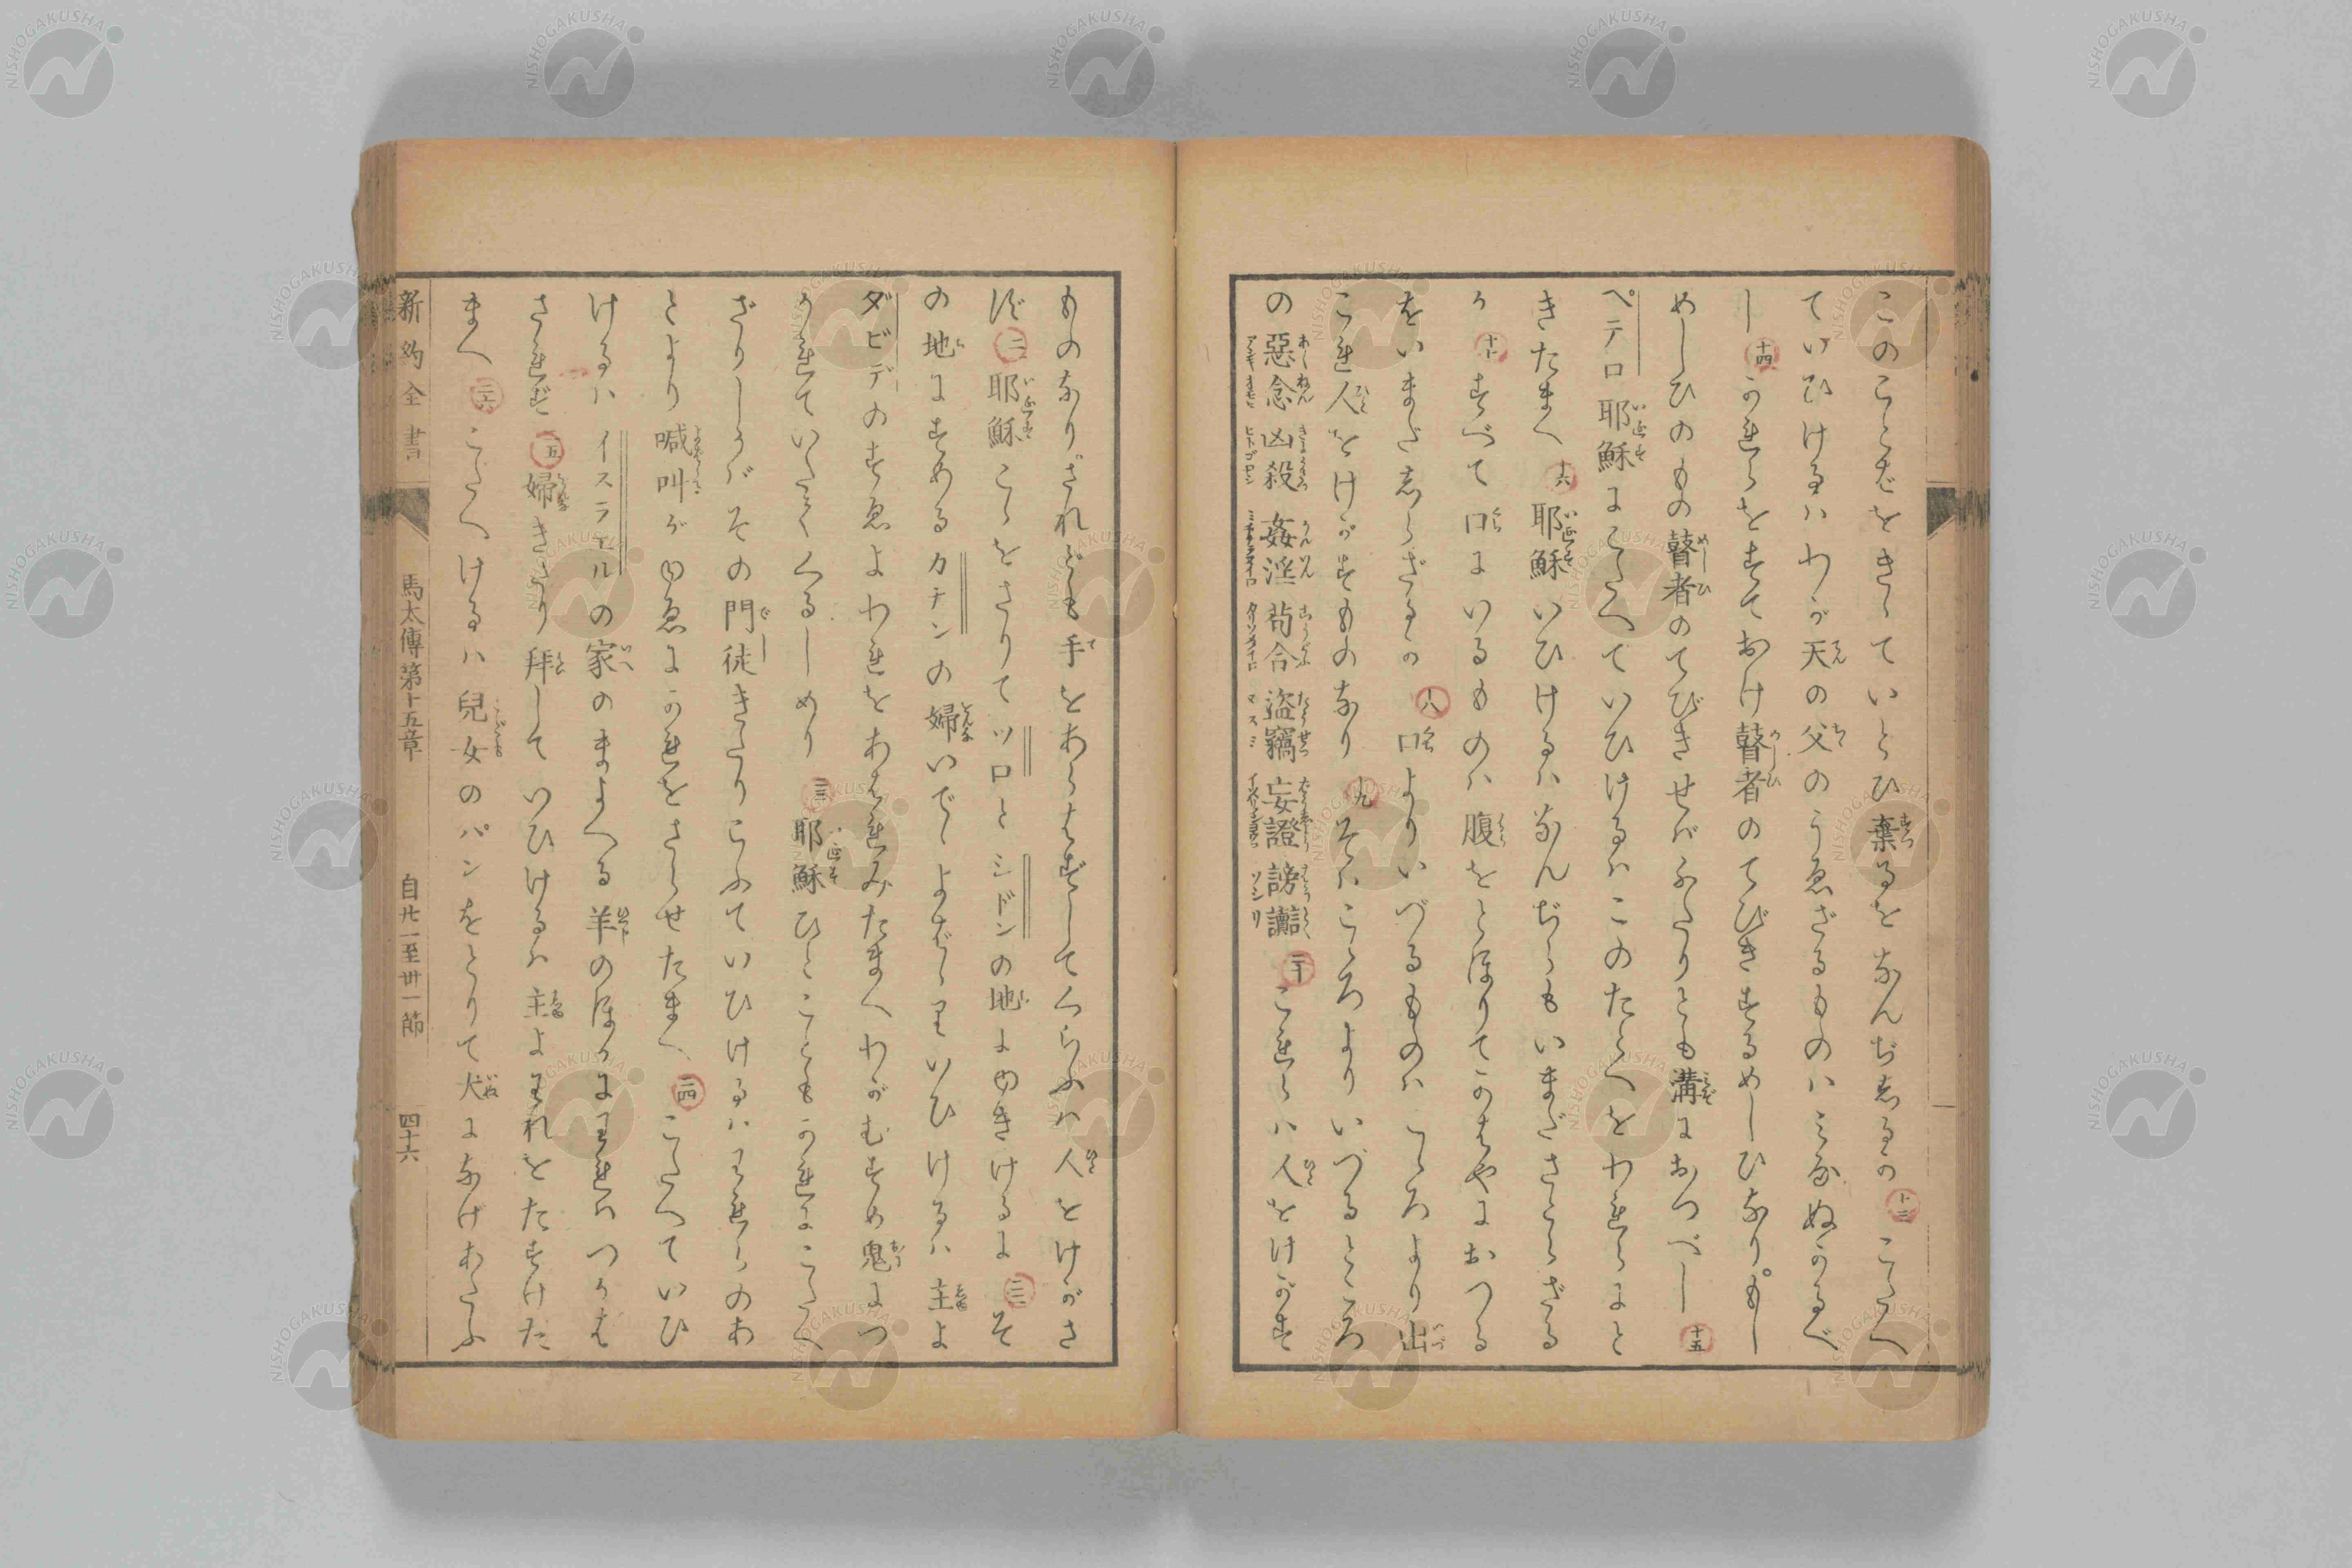 このことばをきゝていとひ棄るをなんぢしるか 十三 こたへ
ていひけるハわが天の父のうゑざるものハミなぬかるべ
し 十四 かれらをすておけ瞽者のてびきするめしひなり。もし
めしひのもの瞽者のてびきせバふたりとも溝におつべし 十五
ペテロ耶穌にこたへていひけるハこのたとへをわれらにと
きたまへ 十六 耶穌いひけるハなんぢらもいまださとらざる
か 十七 すべて口にいるものハ腹をとほりてかはやにおつる
をいまだしらざるか 十八 口よりいづるものハこゝろより出
これ人をけがすものなり 十九 それハこゝろよりいづるところ
の惡念凶殺姦淫苟合盜竊妄證謗讟 二十 これらハ人をけがす
ものなりされども手をあらはずしてくらふハ人をけがさ
ず 二一 耶穌こゝをさりてツロとシドンの地にゆきけるに 二二 そ
の地にすめるカナンの婦いでゝよばゝりいひけるハ主よ
ダビデのすゑよわれをあはれみたまへわがむすめ鬼につ
かれていたくくるしめり 二三 耶穌ひとこともかれにこたへ
ざりしかバその門徒きたりこふていひけるハわれらのあ
とより喊叫がゆゑにかれをさらせたまへ 二四 こたへていひ
けるハイスラエルの家のまよへる羊のほかにわれハつかは
されず 二五 婦きたり拜していひけるハ主よわれをたすけた
まへ 二六 こたへけるハ兒女のパンをとりて犬になげあたふ
新約全書 馬太傳第十五章 自廿一至卅一節 四十六